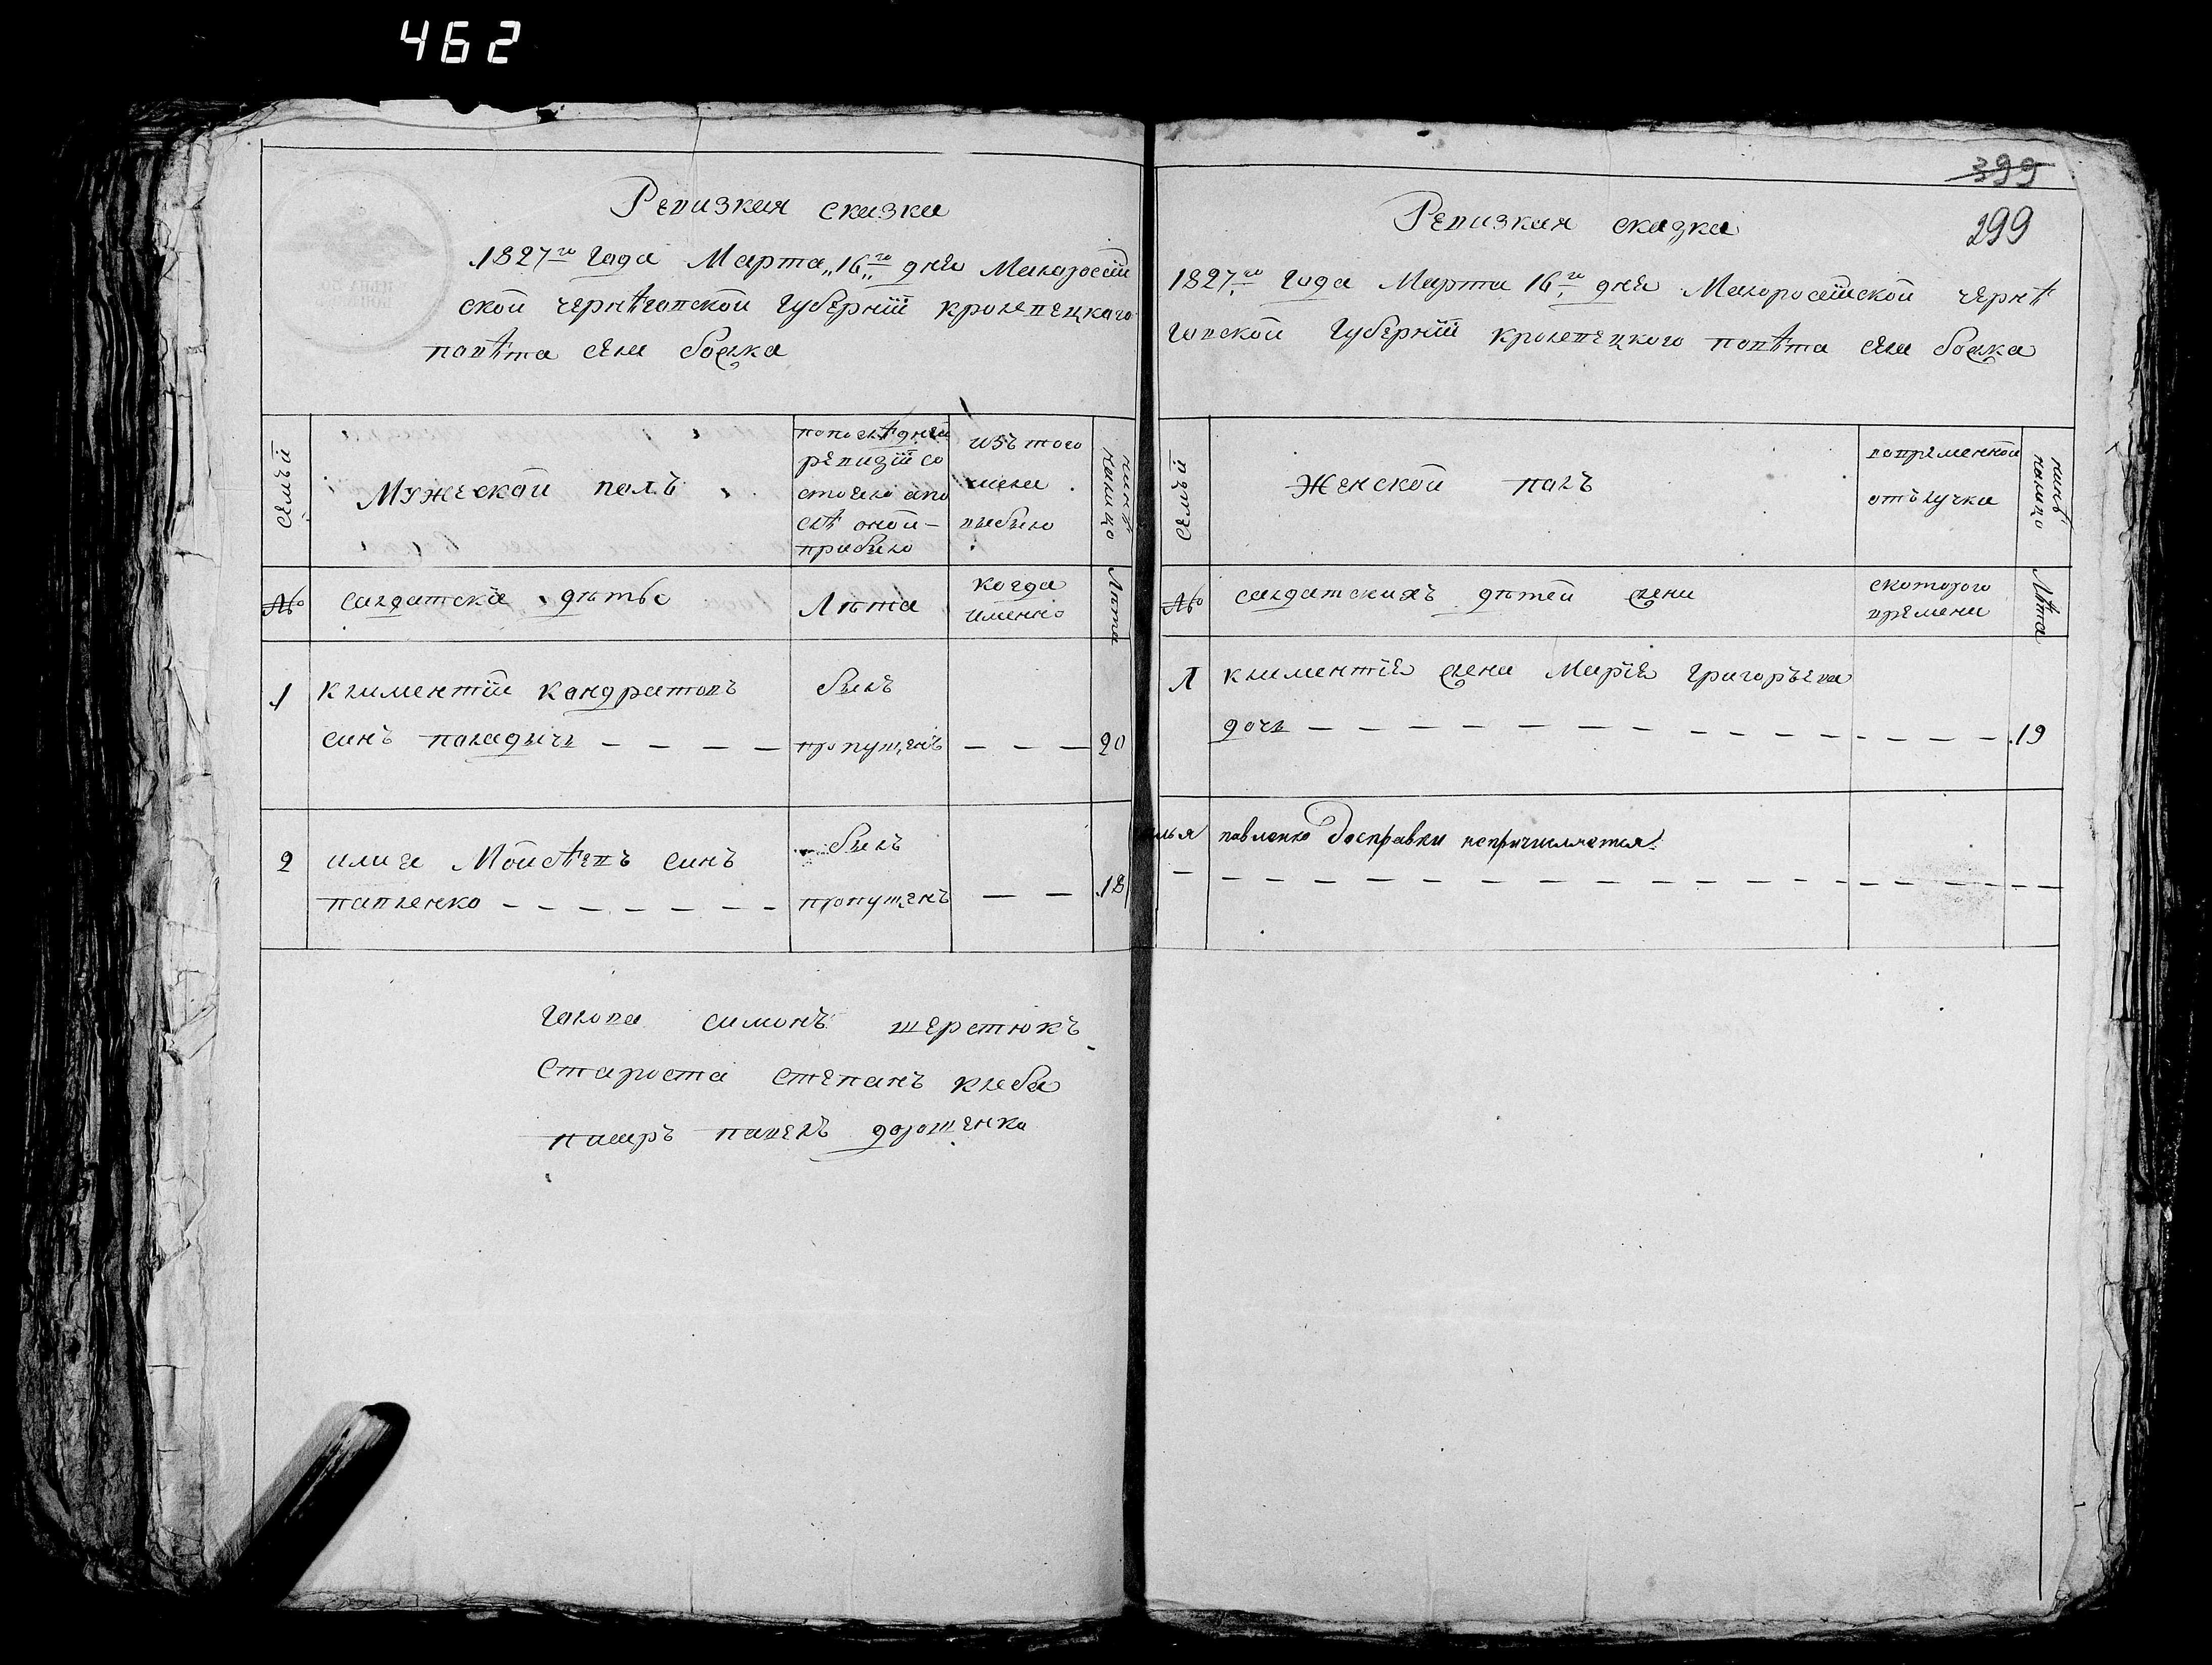 462
Ревизкая сказка
1827го Года Марта „16го„ дня Малоросій
ской чернѣговской Губерніи кролевецкого
повѣта села божка
Семьи
Мужеской полъ
попослѣдней
ревизіи со
стояло ипо
слѣ оной
прибыло
изъ того
числа
выбыло
нинѣ
налицо
№
салдатскіе дѣти
Лѣта
когда
именно
Лѣта
1
климентій кандратовъ
синъ поладичъ
былъ
пропущенъ
20
2
илия Мойсѣевъ синъ
павленко
былъ
пропущенъ
18
голова симонъ шерстюкъ
Староста степанъ
писаръ павелъ дорошенко
399
299
Ревизкая сказка
1827го Года Марта 16го дня Малоросійской чернѣ
говской Губерніи кролевецкого повѣта села божка
Семьи
Женской полъ
вовременной
отълучка
нинѣ
налицо
№
салдатскихъ дѣтей жени
скоторого
времени
Лѣта
1
климентія жена Марія григоръева
дочь
19
илья павленко досправки непричисляется